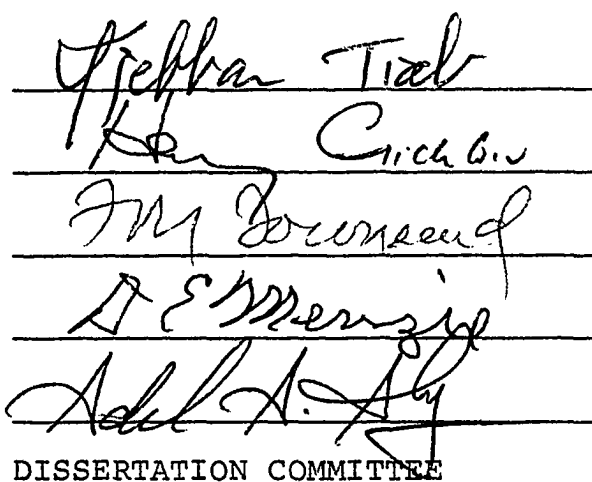 Djebbar Tiab
Henry
FM Townsend
D E Menzie
Adel A. Aly
DISSERTATION COMMITTEE